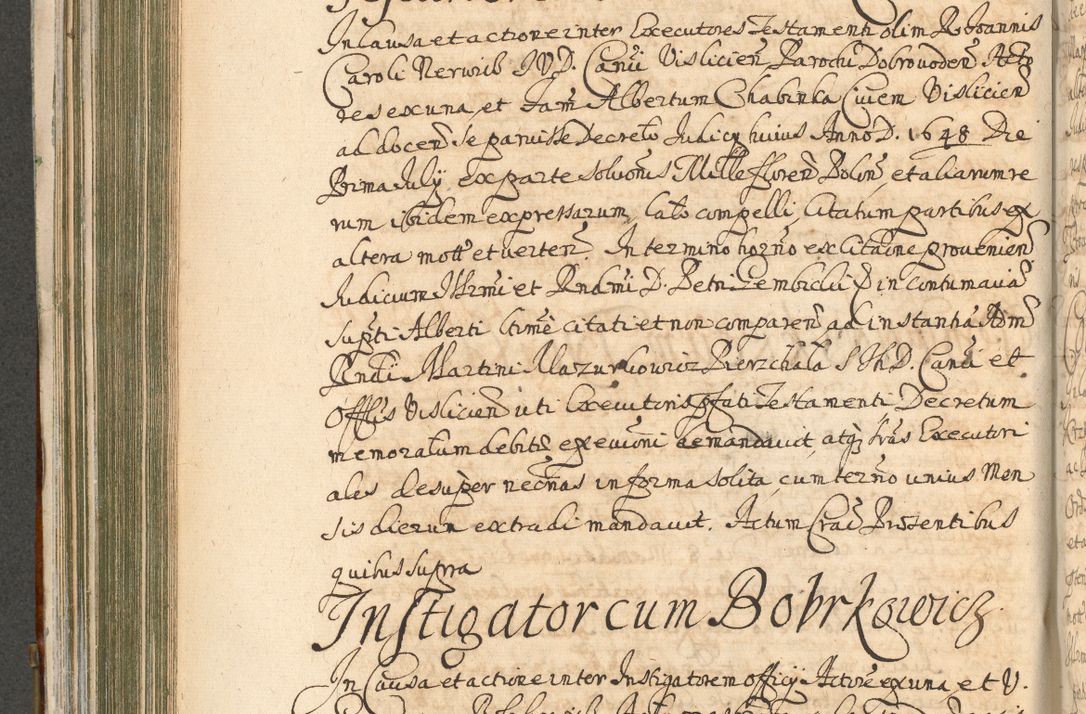 In causa et actione inter Executores Testamenti olim R. Joannis
Caroli Nerwib I.V.D. Canci Visliciens Parochi Dobrovoden Acto
res ex una, et Fam Albertum Chabinka Civem Vislicien
ad docen se paruisse Decreto Judicy huius Anno D. 1648 Die
Prima July, ex parte solvonis Mille floren Polon, et aliarum re
rum ibidem expressarum, cato compelli, Citatum partibus ex
altera mott et verten. In termino horno ex citaone provenien
Judicium Illrmi et Rndmi D. Petri Gembicki D in contumacia
supti Alberti ltime citati et non comparen ad instantia Adm
Rndi Martini Mazurkowicz Pierzchala S Th. D. Canci et
Offlis Vislicien uti Executoris pfati Testamenti, Decretum
memoratum debite exequoni demandavit, atq lras Executori
ales desuper necrias in forma solita, cum terno unius Men
sis dierum extradi mandavit. Actum Crac Presentibus
quibus supra
Instigator cum Bobrkowicz
In Causa et actione inter Instigatorem officij Actore ex una et V.